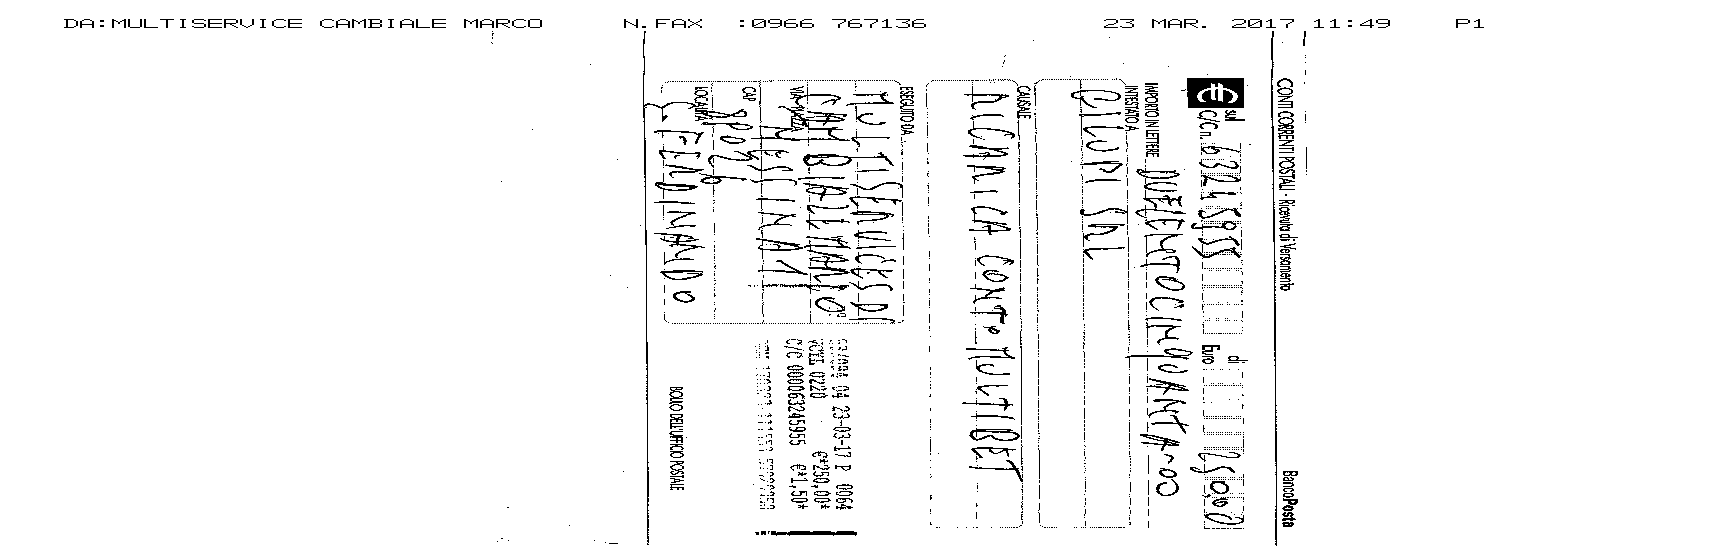 DA:MULTISERVICE CAMBIALE MARCO N.FAX :0966 767136 23 MAR. 2017 11:49 P1
CONTI CORRENTI POSTALI - Ricevuta di Versamento BancoPosta
sul C/C n. 63245955 di Euro 250,00
IMPORTO IN LETTERE DUECENTOCINQUANTA-00
INTESTATO A
GIUPI SRL
CAUSALE
RICARICA CONT. MULTIBET
ESEGUITO DA
MULTISERVICES DI
CAMBIALE MARCO
VIA - PIAZZA
MESSINA 1
CAP
89026
LOCALITÀ
S. FERDINANDO
04 23-03-17 P 0064
VCYL 0220 €*250,00*
C/C 000063245955 €*1,50*
BOLLO DELL'UFFICIO POSTALE